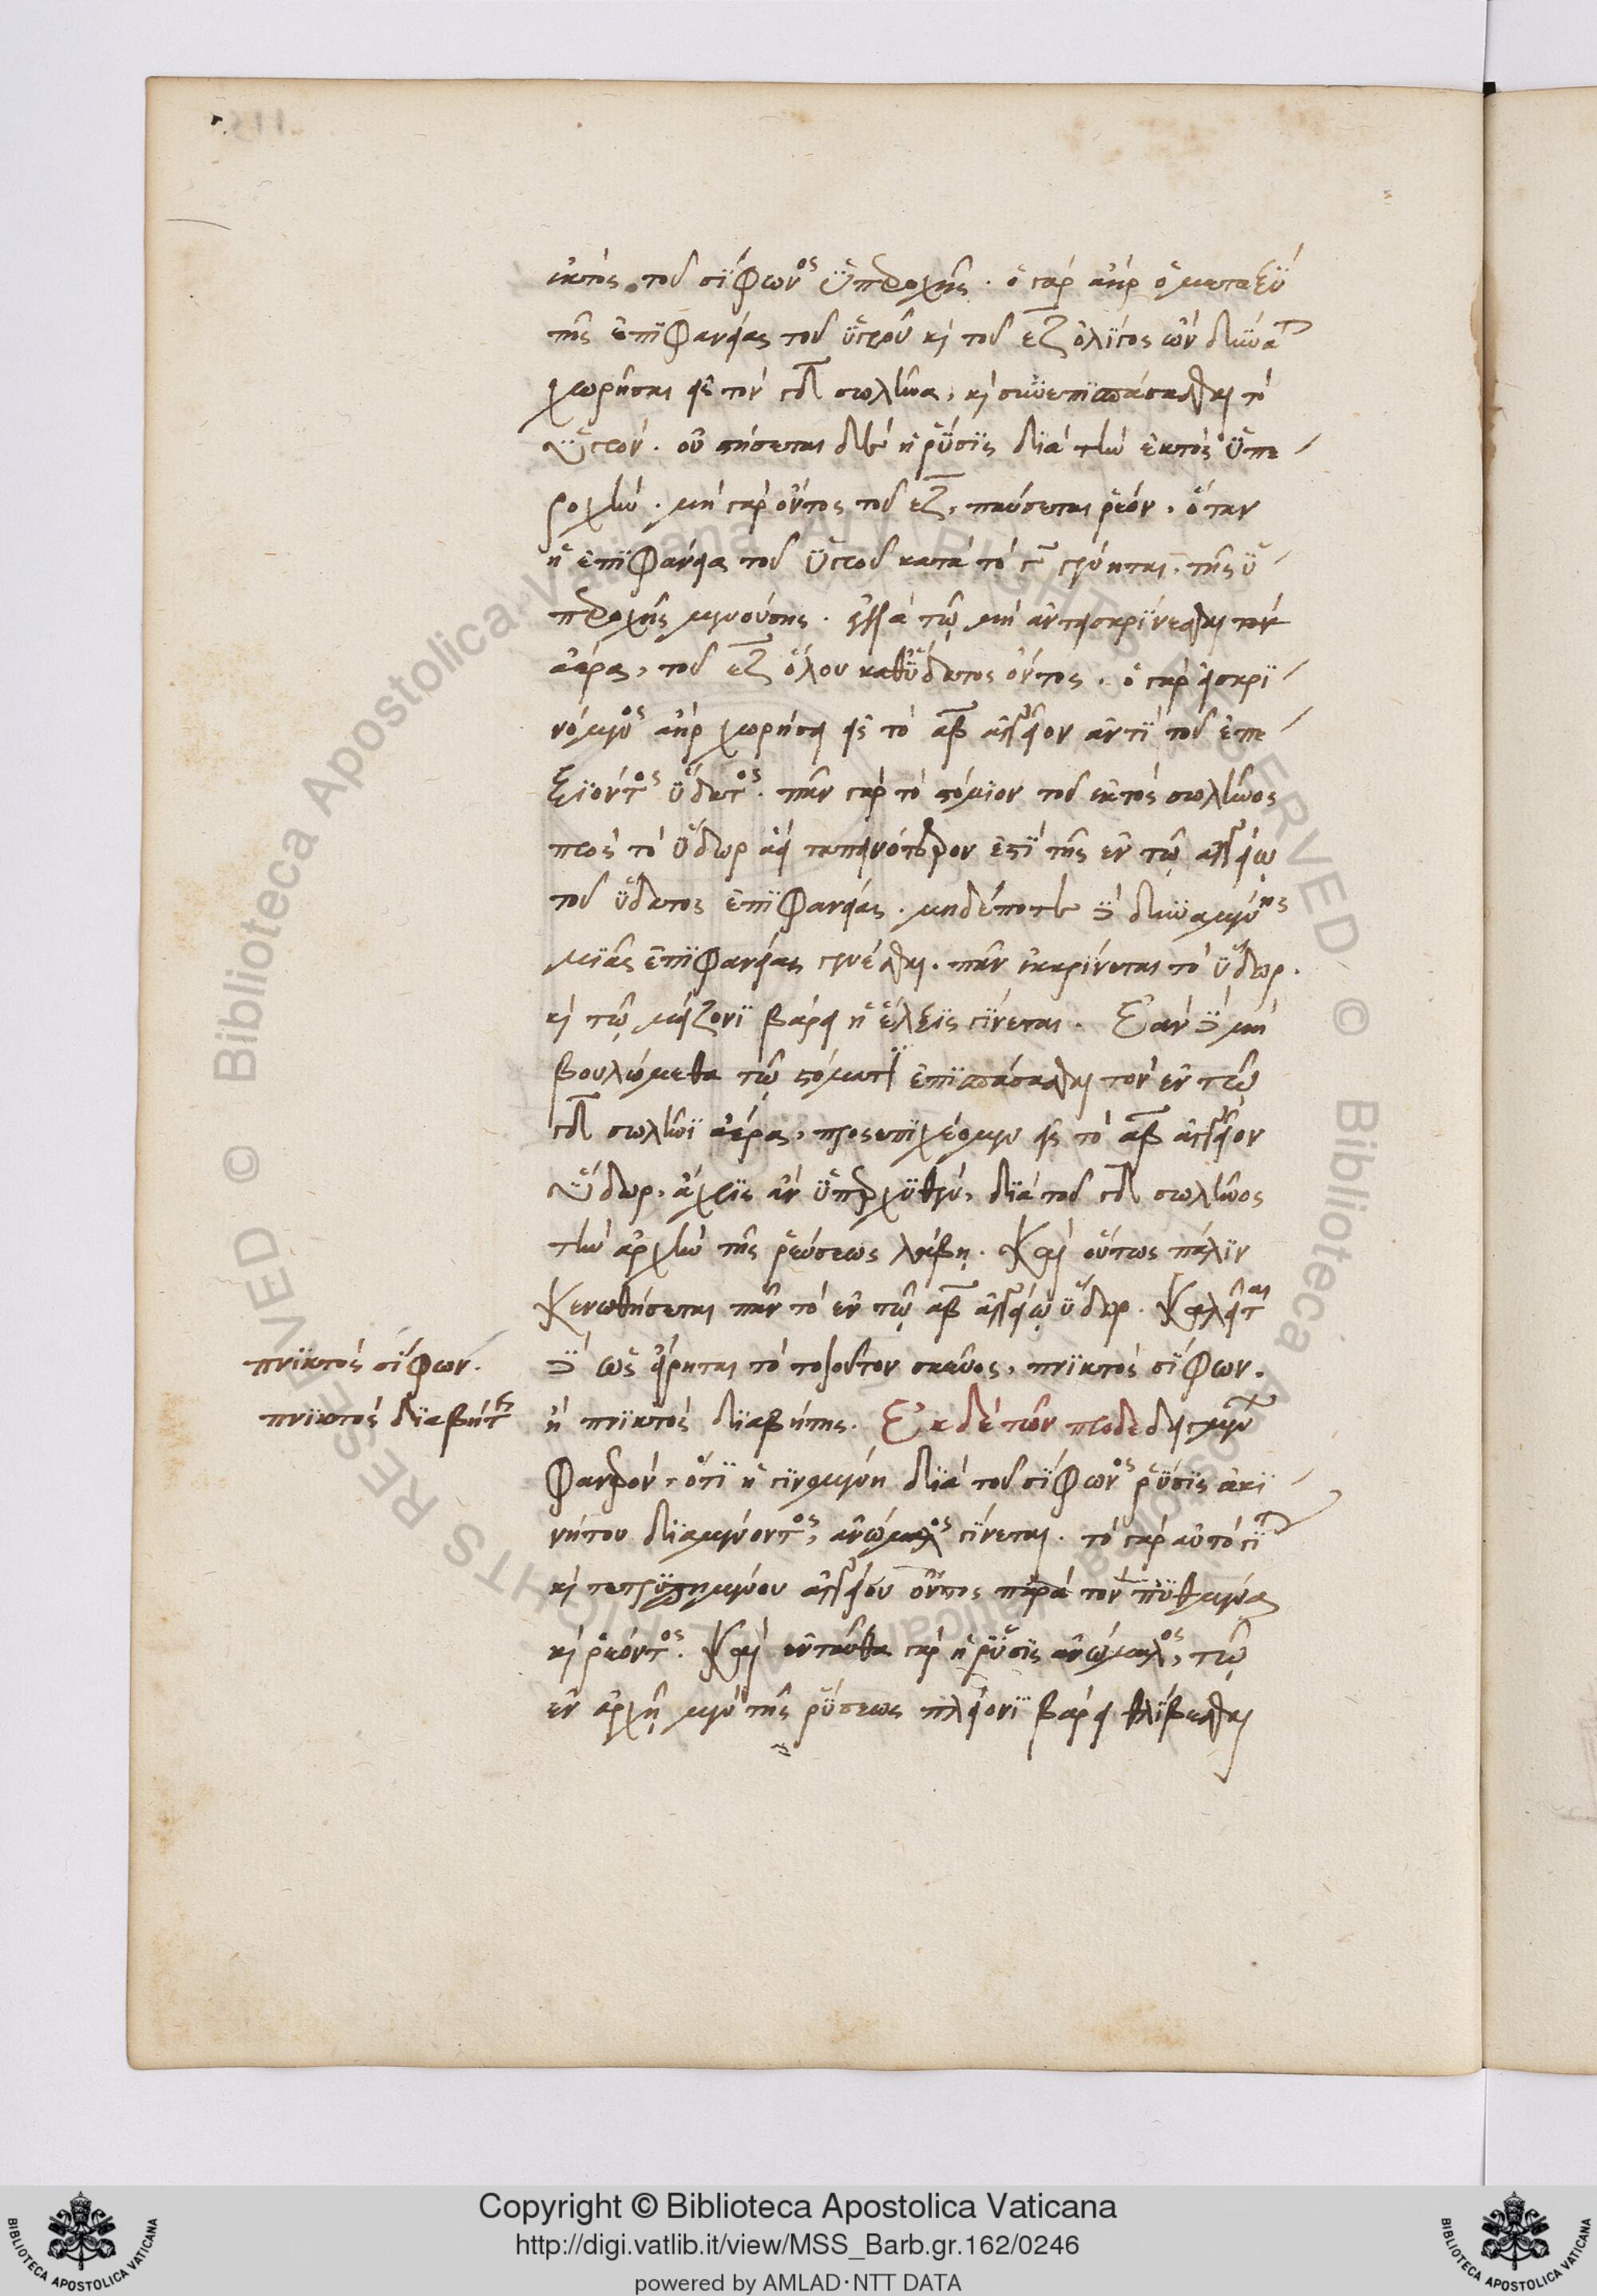 ἐκτὸς τοῦ σίφωνος ὑπεροχῆς. ὁ γὰρ ἀὴρ ὁ μεταξὺ
τῆς ἐπιφανείας τοῦ ὑγροῦ καὶ τοῦ εζ ὀλίγος ὢν δύναται
χωρῆσαι εἰς τὸν γδ σωλῆνα, καὶ συνεπισπάσασθαι τὸ
ὑγρόν. οὐ στήσεται δὲ ἡ ῥύσις διὰ τὴν ἐκτὸς ὑπε
ροχήν. μὴ γὰρ ὄντος τοῦ εζ, παύσεται ῥέον, ὅταν
ἡ ἐπιφάνεια τοῦ ὑγροῦ κατὰ τὸ γ γένηται, τῆς ὑ
περοχῆς μενούσης. ἀλλὰ τῷ μὴ ἀντεισκρίνεσθαι τὸν
ἀέρα, τοῦ εζ ὅλου καθύδατος ὄντος. ὁ γὰρ εἰσκρι
νόμενος ἀὴρ χωρήσει εἰς τὸ αβ ἀγγεῖον ἀντὶ τοῦ ἐπε
ξιόντος ὕδατος. πᾶν γὰρ τὸ στόμιον τοῦ ἐκτὸς σωλῆνος
πρὸς τὸ ὕδωρ ἀεὶ ταπεινότερον ἐστὶ τῆς ἐν τῷ ἀγγείῳ
τοῦ ὕδατος ἐπιφανείας. μηδέποτε δὲ δυναμένης
μιᾶς ἐπιφανείας γενέσθαι. πᾶν ἐκκρίνεται τὸ ὕδωρ.
καὶ τῷ μείζονι βάρει ἡ ἕλξις γίνεται. Ἐὰν δὲ μὴ
βουλώμεθα τῷ στόματι ἐπισπάσασθαι τὸν ἐν τῷ
γδ σωλῆνι ἀέρα, προσεπιχέομεν εἰς τὸ αβ ἀγγεῖον
ὕδωρ, ἄχρις ἂν ὑπερχυθὲν, διὰ τοῦ γδ σωλῆνος
τὴν ἀρχὴν τῆς ῥεύσεως λάβῃ. Καὶ οὕτως πάλιν
Κενωθήσεται πᾶν τὸ ἐν τῷ αβ ἀγγείῳ ὕδωρ. Καλεῖται
δὲ ὡς εἴρηται τὸ τοιοῦτον σκεῦος, πνικτὸς σίφων.
ἢ πνικτὸς διαβήτης. Ἐκ δὲ τῶν προδεδειγμένων
φανερὸν, ὅτι ἡ γινομένη διὰ τοῦ σίφωνος ῥύσις ἀκι
νήτου διαμένοντος, ἀνώμαλος γίνεται. τὸ γὰρ αὐτὸ γί
καὶ τετρυπημένου ἀγγείου ὄντος παρὰ τὸν πυθμένα
καὶ ῥέοντος. Καὶ ἐνταῦθα γὰρ ἡ ῥύσις ἀνώμαλος, τῷ
ἐν ἀρχῇ μὲν τῆς ῥύσεως πλείονι βάρει θλίβεσθαι
πνικτὸς σίφων.
πνικτὸς διαβήτης
© Biblioteca Apostolica Vaticana ALL RIGHTS RESERVED © Biblioteca Apostolica Vaticana ALL RIGHTS RESERVED
Copyright © Biblioteca Apostolica Vaticana
http://digi.vatlib.it/view/MSS_Barb.gr.162/0246
powered by AMLAD·NTT DATA
BIBLIOTECA APOSTOLICA VATICANA
BIBLIOTECA APOSTOLICA VATICANA